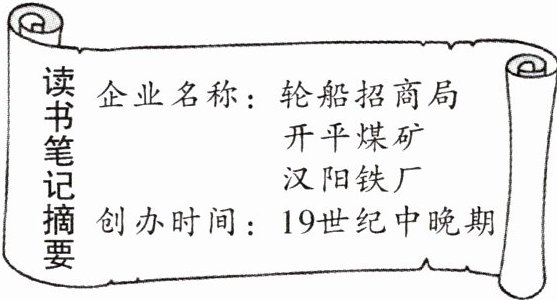 读书笔记摘要
企业名称：轮船招商局
开平煤矿
汉阳铁厂
创办时间：19世纪中晚期